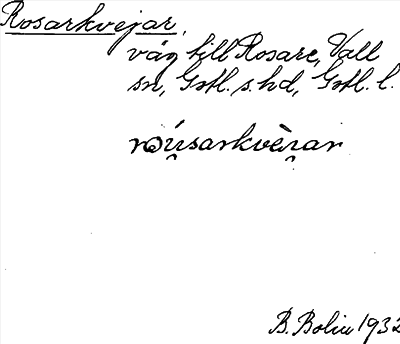 Rosarkvejar,
väg till Rosare, Vall
sn, Gotl. s. hd, Gotl. l.
rʊú̯sarkvèi̯ar
B. Bolin 1932